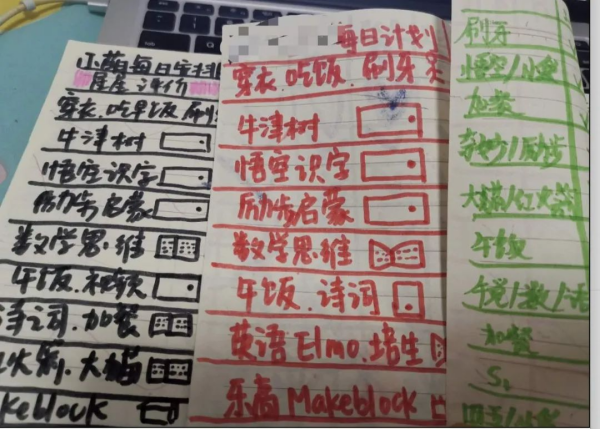 每日安排
星星评价
穿衣.吃早饭.刷
牛津树
悟空识字
励步启蒙
数学思维
午饭.视频
诗词.加餐
火箭.大猫
keblock
每日计划
穿衣.吃饭.刷牙
牛津树
悟空识字
励步启蒙
数学思维
午饭.诗词
英语Elmo.培生
乐高Makeblock
刷牙
悟空/
加餐
/励步
大猫/红火箭
午饭
午税/数/语
加餐
S